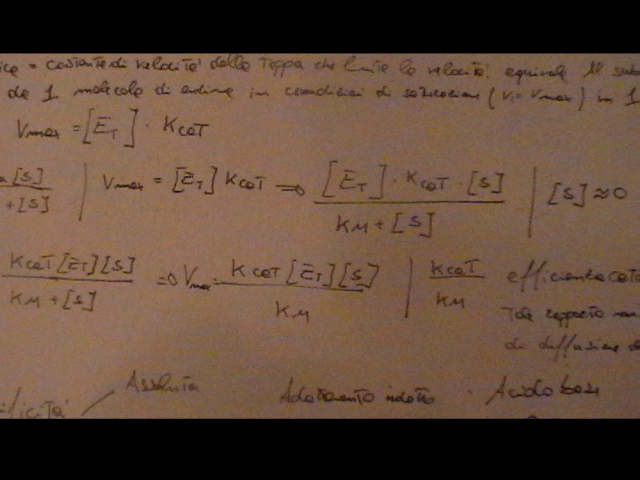 = costante di velocità della tappa che limita la velocità: equivale al
da 1 molecola di enzima in condizioni di saturazione (V = Vmax) in 1
Vmax = [ET] · KCAT
[S] / + [S] | Vmax = [ET] KCAT ⇒ [ET] · KCAT · [S] / KM + [S] | [S] ≈ 0
KCAT [ET] [S] / KM + [S] ⇒ Vmax = KCAT [ET] [S] / KM | KCAT / KM efficienza
Tale rapporto
di diffusione
Assoluta
Adattamento indotto · Acido base